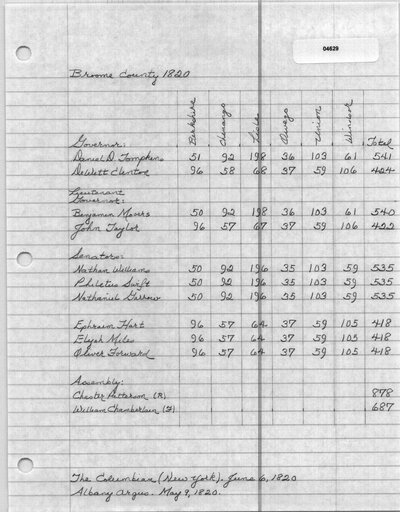 04629
Broome County 1820
Berkshire Chenango Lisle Owego Union Windsor
Governor: Total
Daniel D. Tompkins 51 92 198 36 103 61 541
DeWitt Clinton 96 58 68 37 59 106 424
Lieutenant
Governor:
Benjamin Mooers 50 92 198 36 103 61 540
John Taylor 96 57 67 37 59 106 422
Senators:
Nathan Williams 50 92 196 35 103 59 535
Philetus Swift 50 92 196 35 103 59 535
Nathaniel Garrow 50 92 196 35 103 59 535
Ephraim Hart 96 57 64 37 59 105 418
Elijah Miles 96 57 64 37 59 105 418
Oliver Forward 96 57 64 37 59 105 418
Assembly:
Chester Patterson (R) 878
William Chamberlain (F) 687
The Columbian (New York). June 6, 1820
Albany Argus. May 9, 1820.